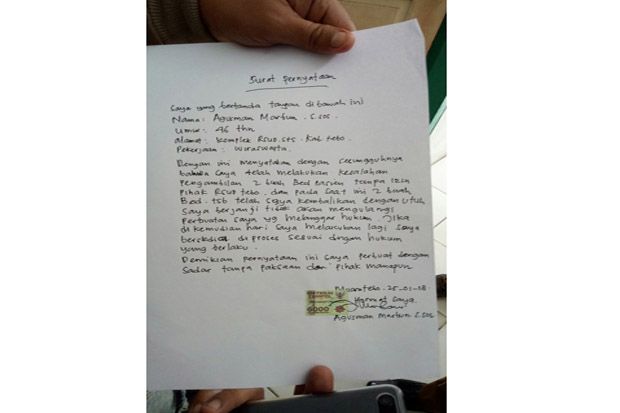 Surat Pernyataan
Saya yang bertanda tangan di bawah ini
Nama : Agusman Marbun . S.sos .
Umur : 46 thn
Alamat : Komplek RSUD.STS . Kab tebo .
Pekerjaan : Wiraswasta .
Dengan ini menyatakan dengan sesungguhnya
bahwa saya telah melakukan kesalahan
Pengambilan 2 buah Bed pasien tanpa izin
Pihak RSUD tebo . dan pada saat ini 2 buah
Bed . tsb telah saya kembalikan dengan utuh
Saya berjanji tidak akan mengulangi
Perbuatan saya yg melanggar hukum . Jika
di kemudian hari saya melakukan lagi saya
bersedia di proses sesuai dengan hukum
yang berlaku .
Demikian pernyataan ini saya perbuat dengan
Sadar tanpa paksaan dari pihak manapun
Muaratebo . 25-01-18 .
Hormat saya.
6000
Agusman Marbun S.sos